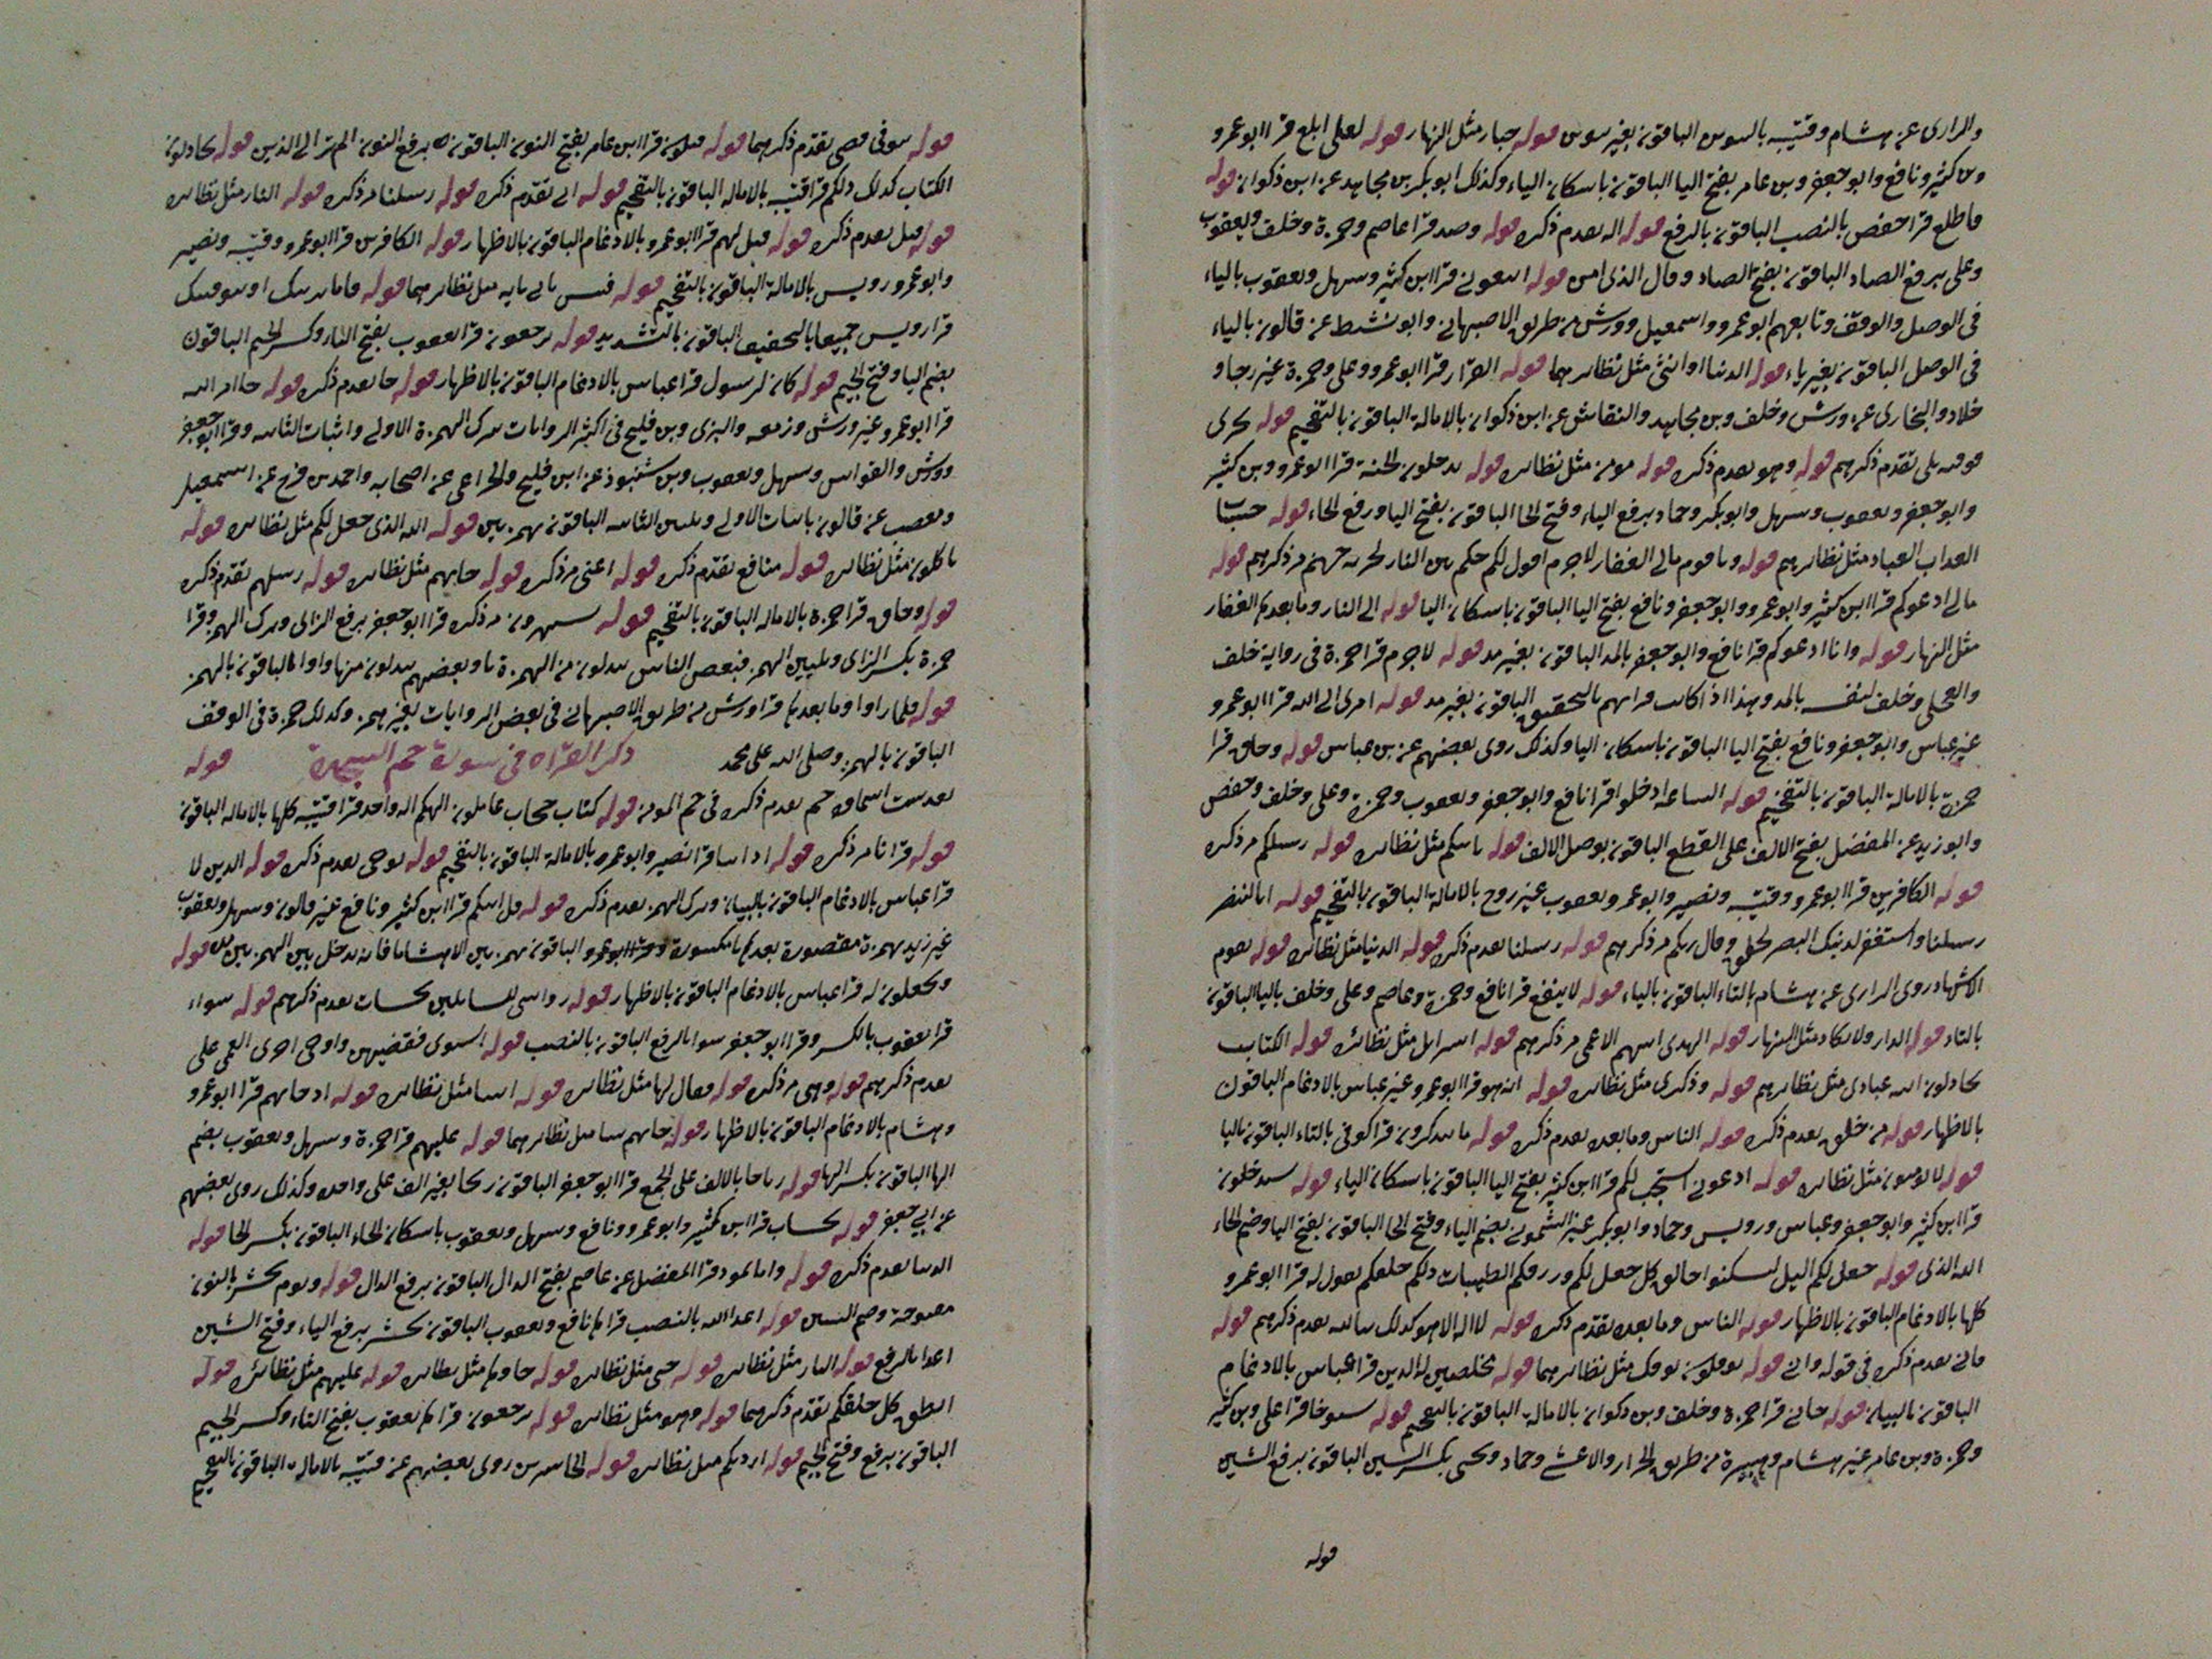 والرارى عن هشام وقتيبه بالسوس الباقون بغير سوس قوله جبار مثل النهار قوله لعلى ابلغ قرا ابوعمرو
وبن كثير ونافع وابو جعفر وبن عامر بفتح اليا الباقون باسكان الياء وكذلك ابو بكر بن مجاهد عن ابن ذكوان قوله
فاطلع قرا حفص بالنصب الباقون بالرفع قوله اله تعدم ذكره قوله وصد قرا عاصم وحمزة وخلف ويعقوب
وعلى برفع الصاد الباقون بفتح الصاد وقال الذى امن قوله اتبعونى قرا ابن كثير وسهل ويعقوب بالياء
فى الوصل والوقف وتابعهم ابو عمرو واسمعيل وورش من طريق الاصبهانى وابو نشيط عن قالون بالياء
فى الوصل الباقون بغير ياء قوله الدنيا او انثى مثل نظائرهما قوله القرار قرا ابو عمرو وعلى وحمزة غير رجا و
خلاد والبخارى عن ورش وخلف وبن مجاهد والنقاش عن ابن ذكوان بالامالة الباقون بالتفخيم قوله يجزى
فوقه بلى تقدم ذكرهم قوله وهو تعدم ذكره قوله مومن مثل نظائره قوله يدخلون الجنة قرا ابو عمرو وبن كثير
وابو جعفر ويعقوب وسهل وابو بكر وحماد برفع الياء وفتح الخا الباقون بفتح اليا ورفع الخاء قوله حسبنا
العذاب العباد مثل نظائرهم قوله وياقوم مالى الغفار لاجرم اقول لكم حكم بين النار لخزنه جهنم مر ذكرهم قوله
مالى ادعوكم قرا ابن كثير وابو عمرو وابو جعفر ونافع بفتح اليا الباقون باسكان اليا قوله الى النار وما بعدها الغفار
مثل النهار قوله وانا ادعوكم قرا نافع وابو جعفر بالمد الباقون بغير مد قوله لاجرم قرا حمزة فى رواية خلف
والعجلى وخلف لنفسه بالمد وهذا اذا كانت قراتهم بالتحقيق الباقون بغير مد قوله امرى الى الله قرا ابو عمرو
غير عباس وابو جعفر ونافع بفتح اليا الباقون باسكان اليا وكذلك روى بعضهم عن بن عباس قوله وحاق قرا
حمزة بالامالة الباقون بالتفخيم قوله الساعة ادخلوا قرا نافع وابو جعفر ويعقوب وحمزة وعلى وخلف وحفص
وابو زيد عن المفضل بفتح الالف على القطع الباقون بوصل الالف قوله ياتيكم مثل نظائره قوله رسلكم مر ذكره
قوله الكافرين قرا ابو عمرو وقتيبه ونصير وابو عمر ويعقوب غير روح بالامالة الباقون بالتفخيم قوله انا لننصر
رسلنا واستغفر لذنبك البصر لخلق وقال ربكم مر ذكرهم قوله رسلنا تعدم ذكره قوله الدنيا مثل نظائره قوله يقوم
الاشهاد روى الرارى عن هشام بالتاء الباقون بالياء قوله لا ينفع قرا نافع وحمزة وعاصم وعلى وخلف باليا الباقون
بالتاء قوله الدار والابكار مثل النهار قوله الهدى اتيهم الاعمى مر ذكرهم قوله اسرايل مثل نظائره قوله الكتاب
يجادلون الله عبادى مثل نظائرهم قوله وذكرى مثل نظائره قوله انه هو قرا ابو عمرو غير عباس بالادغام الباقون
بالاظهار قوله من خلق تعدم ذكره قوله الناس وما بعده تعدم ذكره قوله ما تتذكرون قرا كوفى بالتاء الباقون باليا
قوله لا يومنون مثل نظائره قوله ادعونى استجب لكم قرا ابن كثير بفتح اليا الباقون باسكان الياء قوله سيدخلون
قرا ابن كثير وابو جعفر وعباس ورويس وحماد وابو بكر غير الشمونى بضم الياء وفتح الخا الباقون بفتح اليا وضم الخاء
الله الذى قوله جعل لكم اليل لتسكنوا خالق كل جعل لكم ورزقكم الطيبات ذلكم خلقكم يقول له قرا ابو عمرو
كلها بالادغام الباقون بالاظهار قوله الناس وما بعده تقدم ذكره قوله لا اله الا هو كذلك تعدم ذكرهم قوله
فانى تعدم ذكره فى قوله وانى قوله يوفكون يوفك مثل نظائرهما قوله مخلصين له الدين قرا عباس بالادغام
الباقون بالبيان قوله جانى قرا حمزة وخلف وبن ذكوان بالامالة الباقون بالتفخيم قوله شيوخا قرا على وبن كثير
وحمزة وبن عامر غير هشام وهبيرة من طريق الخزاز والاعشى وحماد ويحيى بكسر الشين الباقون برفع الشين
قوله
قوله سوفى قضى تقدم ذكرهما قوله فيكون قرا ابن عامر بفتح النون الباقون برفع النون الم تر الى الذين قوله يجادلون
الكتاب كذلك ذلكم قرا قتيبه بالاماله الباقون بالتفخيم قوله انى تقدم ذكره قوله رسلنا مر ذكره قوله النار مثل نظائره
قوله قيل تعدم ذكره قوله قيل لهم قرا ابو عمرو بالادغام الباقون بالاظهار قوله الكافرين قرا ابو عمرو وقتيبه ونصير
وابو عمر ورويس بالامالة الباقون بالتفخيم قوله فبئس ياتى بايه مثل نظائرهما قوله فاما نرينك او نتوفينك
قرا رويس جميعا بالتخفيف الباقون بالتشديد قوله يرجعون قرا يعقوب بفتح التاء وكسر الجيم الباقون
بضم اليا وفتح الجيم قوله كان لرسول قرا عباس بالادغام الباقون بالاظهار قوله جا تعدم ذكره قوله جا امر الله
قرا ابو عمرو غير ورش وزمعه والبزى وبن فليح فى اكثر الروايات بترك الهمزة الاولى واثبات الثانيه وقرا ابو جعفر
وورش والقواس وسهل ويعقوب وبن شنبوذ عن ابن فليح والخزاعى عن اصحابه واحمد بن فرح عن اسمعيل
وبعضه عن قالون باثبات الاولى وتليين الثانيه الباقون بهمزتين قوله الله الذى جعل لكم مثل نظائره قوله
ياكلون مثل نظائره قوله منافع تقدم ذكره قوله اغنى مر ذكره قوله جاتهم مثل نظائره قوله رسلهم تقدم ذكره
قوله وحاق قرا حمزة بالاماله الباقون بالتفخيم قوله يستهزون مر ذكره قرا ابو جعفر برفع الزاى وترك الهمز وقرا
حمزة بكسر الزاى وتليين الهمز فبعض الناس يبدلون من الهمزة يا وبعضهم يبدلون منها واوا الباقون بالهمز
قوله فلما راوا وما بعدها قرا ورش من طريق الاصبهانى فى بعض الروايات بغير همز وكذلك حمزة فى الوقف
الباقون بالهمز وصلى الله على محمد ذكر القراه فى سورة حم السجدة قوله
تعدم ذكره فى حم المومن قوله كتاب حجاب عاملون الهكم اله واحد قرا قتيبه كلها بالاماله الباقون
قوله قرانا مر ذكره قوله اذاننا قرا نصير وابو عمرو بالامالة الباقون بالتفخيم قوله يوحى تعدم ذكره قوله الذين لا
قرا عباس بالادغام الباقون بالبيان وترك الهمز تعدم ذكره قوله قل ائنكم قرا ابن كثير ونافع غير قالون وسهل ويعقوب
غير زيد بهمزة مقصورة بعدها يا مكسورة وقرا ابو عمرو الباقون بهمزتين الا هشاما فانه يدخل بين الهمزتين مده قوله
وتجعلون له قرا عباس بالادغام الباقون بالاظهار قوله رواسى للسايلين نحسات تعدم ذكرهم قوله سواء
قرا يعقوب بالكسر وقرا ابو جعفر سوا بالرفع الباقون بالنصب قوله استوى فقضيهن واوحى اخزى العمى على
تعدم ذكرهم قوله وهى مر ذكره قوله فقال لها مثل نظائره قوله ائتيا مثل نظائره قوله اذ جاتهم قرا ابو عمرو
وهشام بالادغام الباقون بالاظهار قوله جاتهم شا مثل نظائرهما قوله عليهم قرا حمزة وسهل ويعقوب بضم
الها الباقون بكسر الها قوله رياحا بالالف على الجمع قرا ابو جعفر الباقون ريحا بغير الف على واحده وكذلك روى بعضهم
عن ابى جعفر قوله نحسات قرا ابن كثير وابو عمرو ونافع وسهل ويعقوب باسكان الحاء الباقون بكسر الحا قوله
الدنيا تعدم ذكره قوله واما ثمود قرا المفضل عن عاصم بفتح الدال الباقون برفع الدال قوله ويوم نحشر بالنون
مفتوحة وضم الشين قوله اعدا الله بالنصب قراها نافع ويعقوب الباقون يحشر برفع الياء وفتح الشين
اعدا بالرفع قوله النار مثل نظائره قوله حتى مثل نظائره قوله جاوها مثل نظائره قوله عليهم مثل نظائره قوله
انطق كل خلقكم تقدم ذكرهما قوله وهو مثل نظائره قوله ترجعون قراها يعقوب بفتح التاء وكسر الجيم
الباقون برفع وفتح الجيم قوله ارديكم مثل نظائره قوله الخاسرين روى بعضهم عن قتيبه بالامالة الباقون بالتفخيم